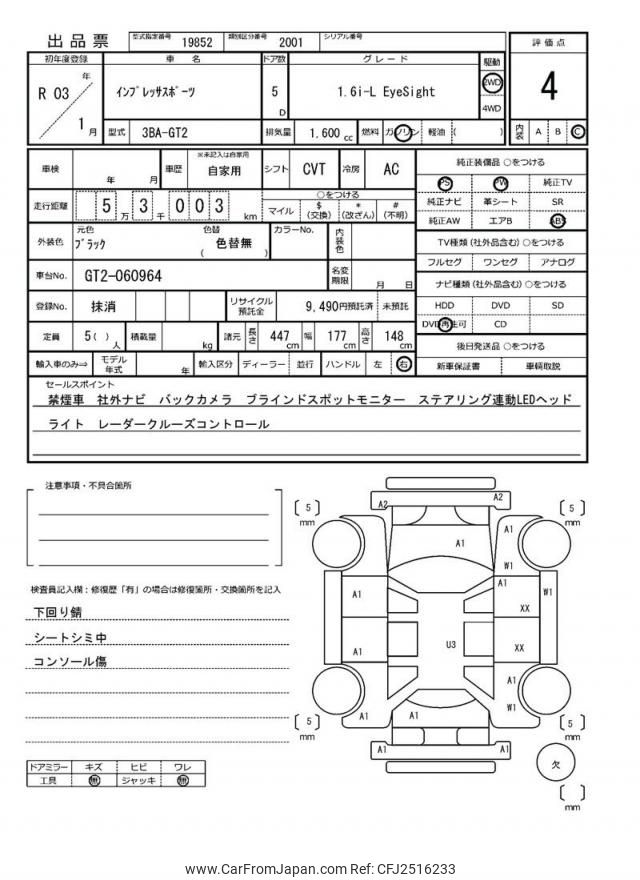 出品票 型式指定番号 19852 類別区分番号 2001 シリアル番号
初年度登録 車名 ドア数 グレード 駆動 評価点
R 03 年 1 月 ｲﾝﾌﾟﾚｯｻｽﾎﾟｰﾂ 5 D 1.6i-L EyeSight 2WD 4WD 4
型式 3BA-GT2 排気量 1,600 cc 燃料 ガソリン 軽油 ( ) 内装 A B C
車検 年 月 車歴 ※未記入は自家用 自家用 シフト CVT 冷房 AC
走行距離 5 万 3 千 0 0 3 km ○をつける
マイル $ (交換) * (改ざん) # (不明)
外装色 元色 ﾌﾞﾗｯｸ 色替 ( 色替無 ) カラーNo. 内装色
車台No. GT2-060964 名変期限 月 日
登録No. 抹消 リサイクル預託金 9,490円預託済 未預託
定員 5( ) 人 積載量 kg 諸元 長さ 447 cm 幅 177 cm 高さ 148 cm
輸入車のみ⇒ モデル年式 年 輸入区分 ディーラー 並行 ハンドル 左 右
純正装備品 ○をつける
PS PW 純正TV
純正ナビ 革シート SR
純正AW エアB ABS
TV種類 (社外品含む) ○をつける
フルセグ ワンセグ アナログ
ナビ種類 (社外品含む) ○をつける
HDD DVD SD
DVD再生可 CD
後日発送品 ○をつける
新車保証書 車輌取説
セールスポイント
禁煙車 社外ナビ バックカメラ ブラインドスポットモニター ステアリング連動LEDヘッド
ライト レーダークルーズコントロール
注意事項・不具合箇所
検査員記入欄：修復歴「有」の場合は修復箇所・交換箇所を記入
下回り錆
シートシミ中
コンソール傷
ドアミラー キズ ヒビ ワレ
工具 無 ジャッキ 無
A2 A2
5 mm 5 mm
A1 A1
W1
A1 A1 W1
XX
A1 U3 XX
A1
W1
A1 A1
5 mm 5 mm
A1 A1
欠
mm
www.CarFromJapan.com Ref: CFJ2516233